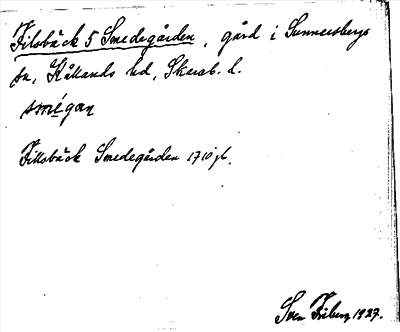 Filsbäck 5 Smedegården, gård i Sunnersbergs
sn, Kållands hd, Skarab. l.
smégan
Fillsbäck Smedegården 1710 jb.
Sven Friberg 1927.